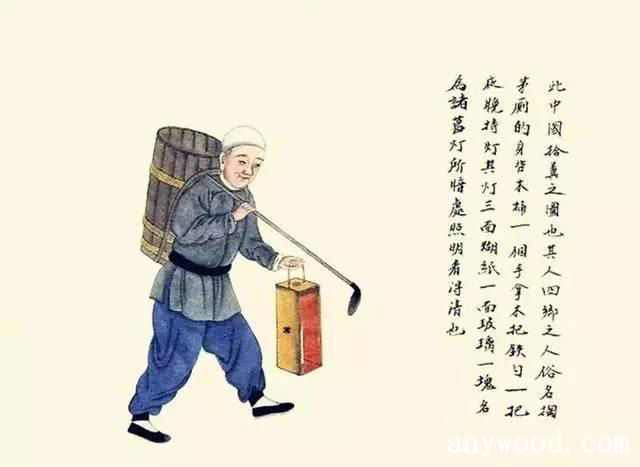 此中國拾糞之圖也其人四鄉之人俗名掏
茅厕的身背木桶一個手拿木把鉄勺一把
夜晚持灯其灯三面糊紙一面玻璃一塊名
為諸葛灯所將處照明看得清也
www.anywood.com